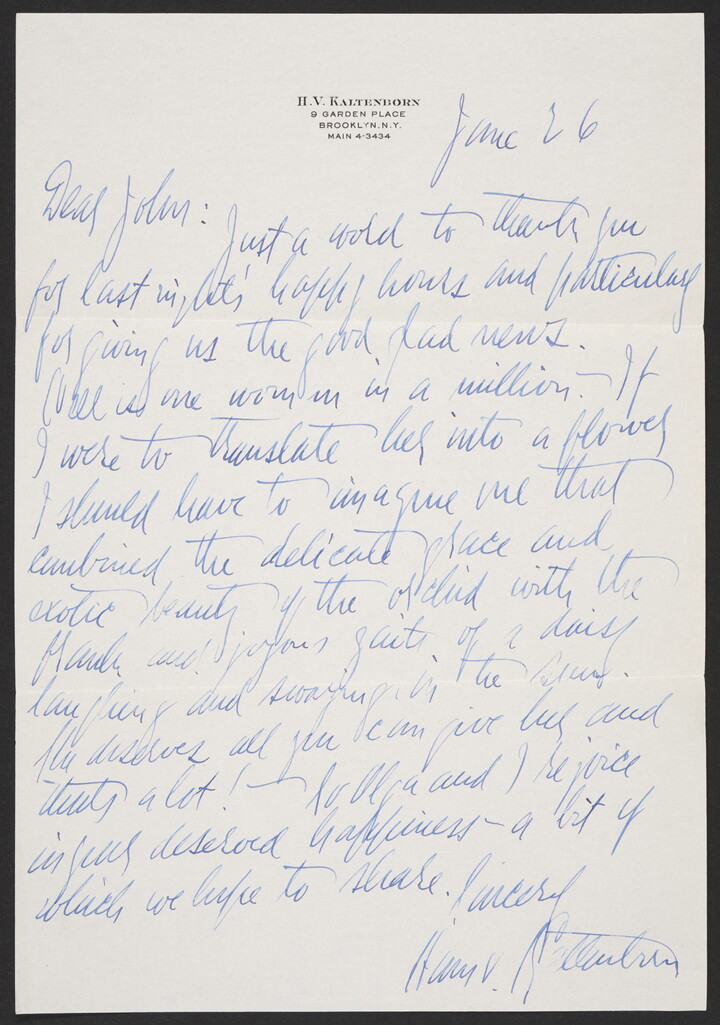 H.V. KALTENBORN
9 GARDEN PLACE
BROOKLYN, N.Y.
MAIN 4-3434
June 26
Dear John:
Just a word to thank you
for last night's happy hours and particulary
for giving us the good glad news.
is one woman in a million. – If
I were to translate her into a flower
I should have to imagine one that
combined the delicate grace and
exotic beauty of the orchid with the
frank and joyous gaits of a daisy
laughing and swaying in the sun.
She deserves all you can give her and
thats a lot! – So Olga and I rejoice
in your deserved happiness – a bit of
which we hope to share.
Sincerely
Hans v. Kaltenborn